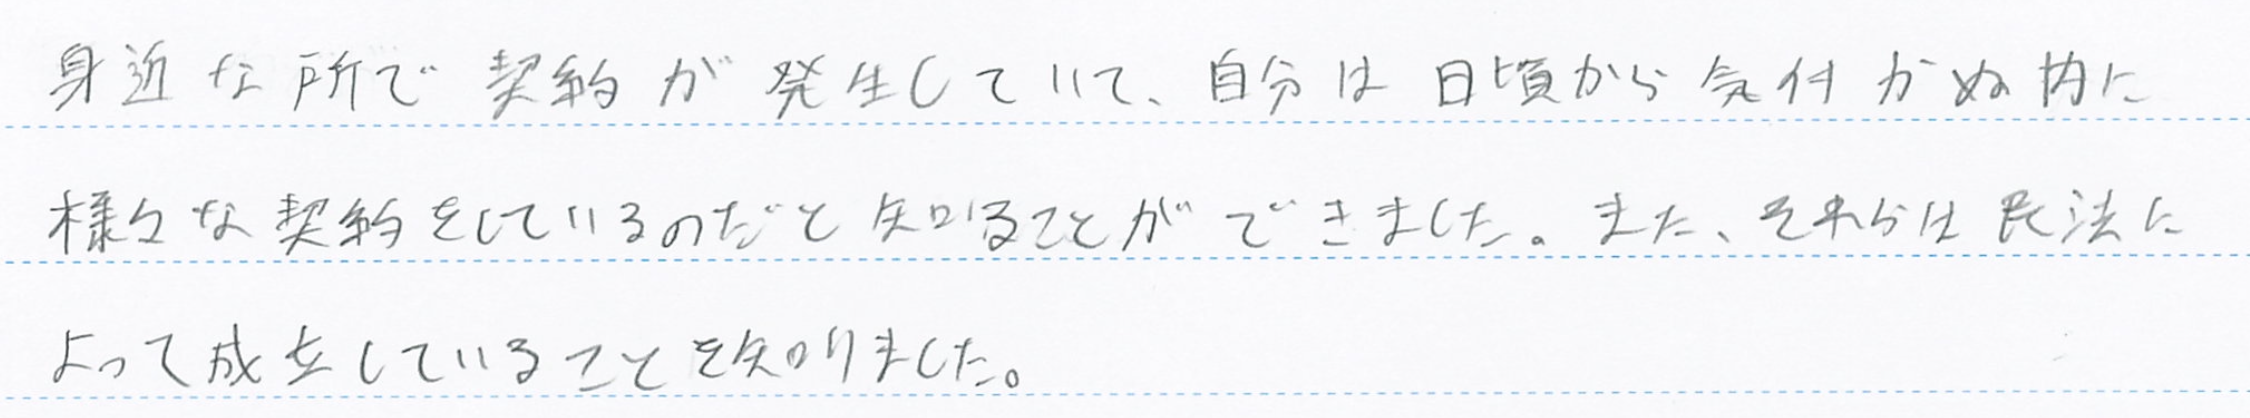 身近な所で契約が発生していて、自分は日頃から気付かぬ内に
様々な契約をしているのだと知ることができました。また、それらは民法に
よって成立していることを知りました。